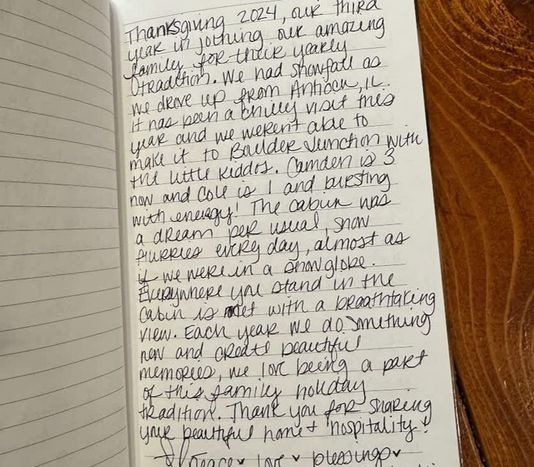 Thanksgiving 2024, our third
year in joining our amazing
family for their yearly
tradition. We had snowfall as
we drove up from Antioch, IL.
It has been a chilly visit this
year and we weren't able to
make it to Boulder Junction with
the little kiddos. Camden is 3
now and Cole is 1 and bursting
with energy! The cabin was
a dream per usual, snow
flurries every day, almost as
if we were in a snowglobe.
Everywhere you stand in the
cabin is met with a breathtaking
view. Each year we do something
new and create beautiful
memories, we love being a part
of this family holiday
tradition. Thank you for sharing
your beautiful home + hospitality!
Peace ♥ love ♥ blessings ♥